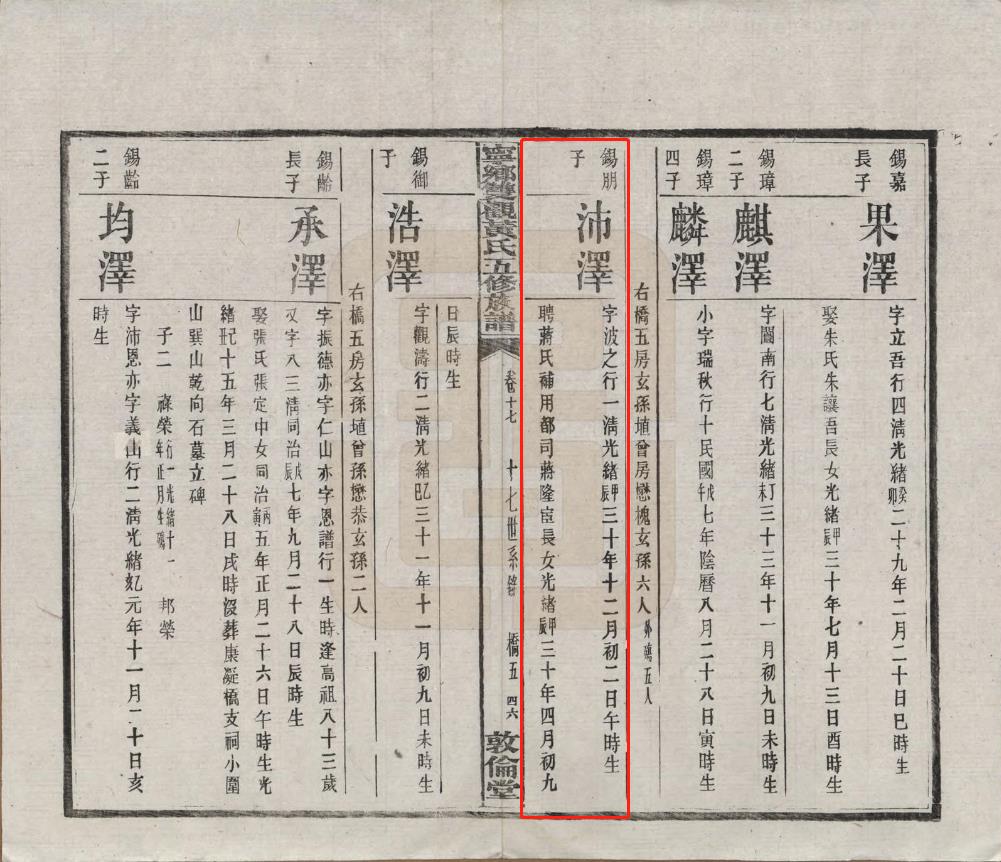 錫嘉
長子
果澤
字立吾行四淸光緒癸卯二十九年二月二十日巳時生
娶朱氏朱讓吾長女光緒甲辰三十年七月十三日酉時生
錫璋
二子
麒澤
字闓南行七淸光緒丁未三十三年十一月初九日未時生
錫璋
四子
麟澤
小字瑞秋行十民國戊午七年陰曆八月二十八日寅時生
右橋五房玄孫埴曾房懋槐玄孫六人
五人
錫朋
子
沛澤
字波之行一淸光緒甲辰三十年十二月初二日午時生
聘蔣氏補用都司蔣隆宦長女光緒甲辰三十年四月初九
寧鄉雙觀黃氏五修族譜
卷十七
十七世系
橋五
四六
敦倫堂
日辰時生
錫御
子
浩澤
字觀濤行二淸光緒乙巳三十一年十一月初九日未時生
右橋五房玄孫埴曾孫懋恭玄孫二人
錫齡
長子
承澤
字振德亦字仁山亦字恩譜行一生時逢高祖八十三歲
又字八三淸同治戊辰七年九月二十八日辰時生
娶張氏張定中女同治丙寅五年正月二十六日午時生光
緒己丑十五年三月二十八日戌時沒葬康凝橋支祠小圍
山巽山乾向石墓立碑
子二 祿榮 行一光緒十一年正月生殤 邦榮
錫齡
二子
均澤
字沛恩亦字義山行二淸光緒元年十一月二十日亥
時生